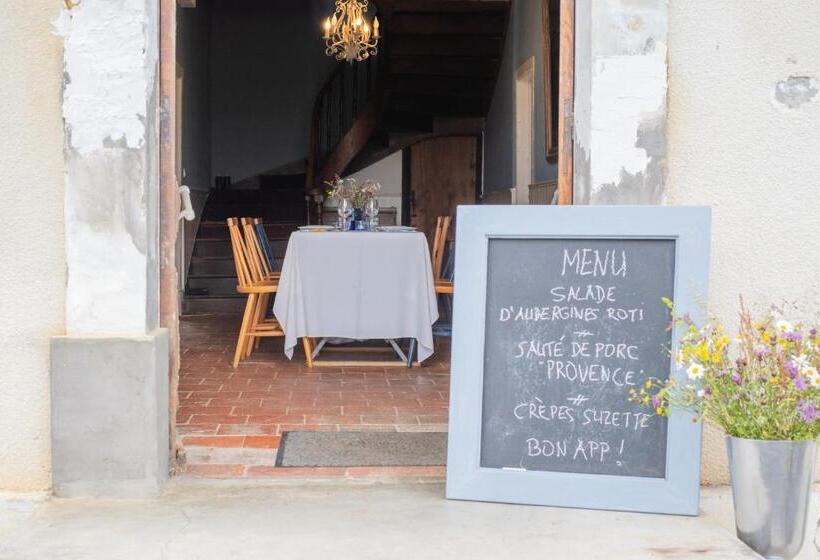 MENU
SALADE
D'AUBERGINES ROTI
#
SAUTÉ DE PORC
"PROVENCE"
#
CRÊPES SUZETTE
BON APP !